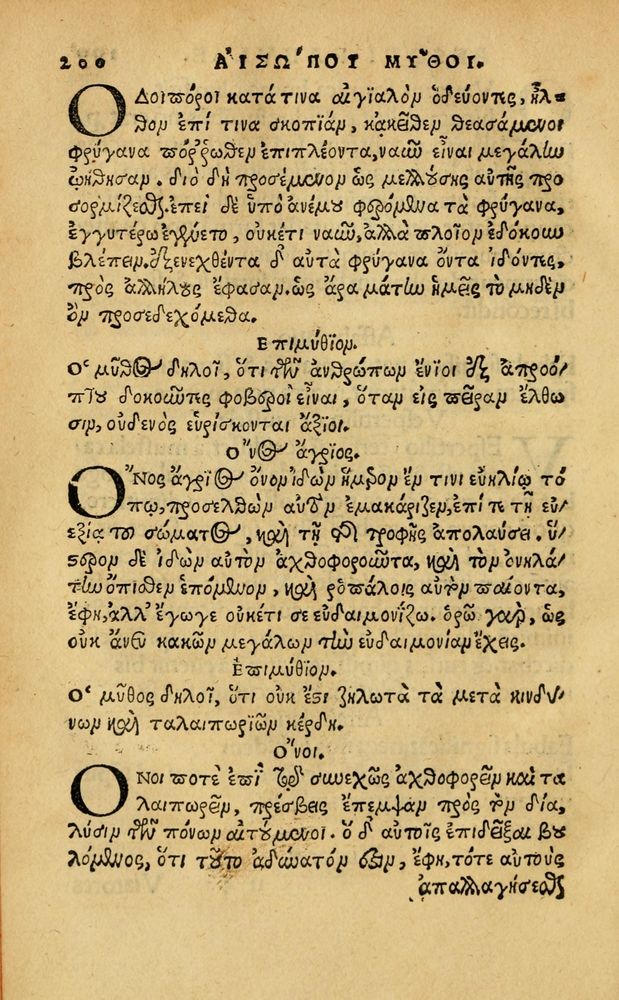 200 ΑΙΣΩΠΟΥ ΜΥΘΟΙ.
ΟΔοιπόροι κατά τινα αἰγιαλὸν ὁδεύοντες, ἦλ-
θον ἐπί τινα σκοπιάν, κἀκεῖθεν θεασάμενοι
φρύγανα πόρρωθεν ἐπιπλέοντα, ναῦν εἶναι μεγάλην
ᾠήθησαν. διὸ δὴ προσέμενον ὡς μελλούσης αὐτῆς προ
σορμίζεσθαι. ἐπεὶ δὲ ὑπὸ ἀνέμου φερόμενα τὰ φρύγανα,
ἐγγυτέρω ἐγένετο, οὐκέτι ναῦν, ἀλλὰ πλοῖον ἐδόκουν
βλέπειν. ἐξενεχθέντα δ' αὐτὰ φρύγανα ὄντα ἰδόντες,
πρὸς ἀλλήλους ἔφασαν. ὡς ἄρα μάτην ἡμεῖς τὸ μηδὲν
ὂν προσεδεχόμεθα.
Ἐπιμύθιον.
Ὁ μῦθος δηλοῖ, ὅτι τῶν ἀνθρώπων ἔνιοι ἐξ ἀπροό-
πτου δοκοῦντες φοβεροὶ εἶναι, ὅταν εἰς πεῖραν ἔλθω
σιν, οὐδενὸς εὑρίσκονται ἄξιοι.
Ὄνος ἄγριος.
ὌΝος ἄγριος ὄνον ἰδὼν ἥμερον ἔν τινι εὐηλίῳ τό
πῳ, προσελθὼν αὐτὸν ἐμακάριζεν, ἐπί τε τῇ εὐ-
εξίᾳ τοῦ σώματος, καὶ τῇ τῆς τροφῆς ἀπολαύσει. ὕ-
στερον δὲ ἰδὼν αὐτὸν ἀχθοφοροῦντα, καὶ τὸν ὀνηλά-
την ὄπισθεν ἑπόμενον, καὶ ῥοπάλοις αὐτὸν παίοντα,
ἔφη, ἀλλ' ἔγωγε οὐκέτι σε εὐδαιμονίζω. ὁρῶ γὰρ, ὡς
οὐκ ἄνευ κακῶν μεγάλων τὴν εὐδαιμονίαν ἔχεις.
Ἐπιμύθιον.
Ὁ μῦθος δηλοῖ, ὅτι οὐκ ἔστι ζηλωτὰ τὰ μετὰ κινδύ-
νων καὶ ταλαιπωριῶν κέρδη.
Ὄνοι.
ὌΝοι ποτὲ ἐπὶ τῷ συνεχῶς ἀχθοφορεῖν καὶ τα
λαιπωρεῖν, πρέσβεις ἔπεμψαν πρὸς τὸν δία,
λύσιν τῶν πόνων αἰτούμενοι. ὁ δ' αὐτοῖς ἐπιδεῖξαι βου
λόμενος, ὅτι τοῦτο ἀδύνατόν ἐστιν, ἔφη, τότε αὐτοὺς
ἀπαλλαγήσεσθαι